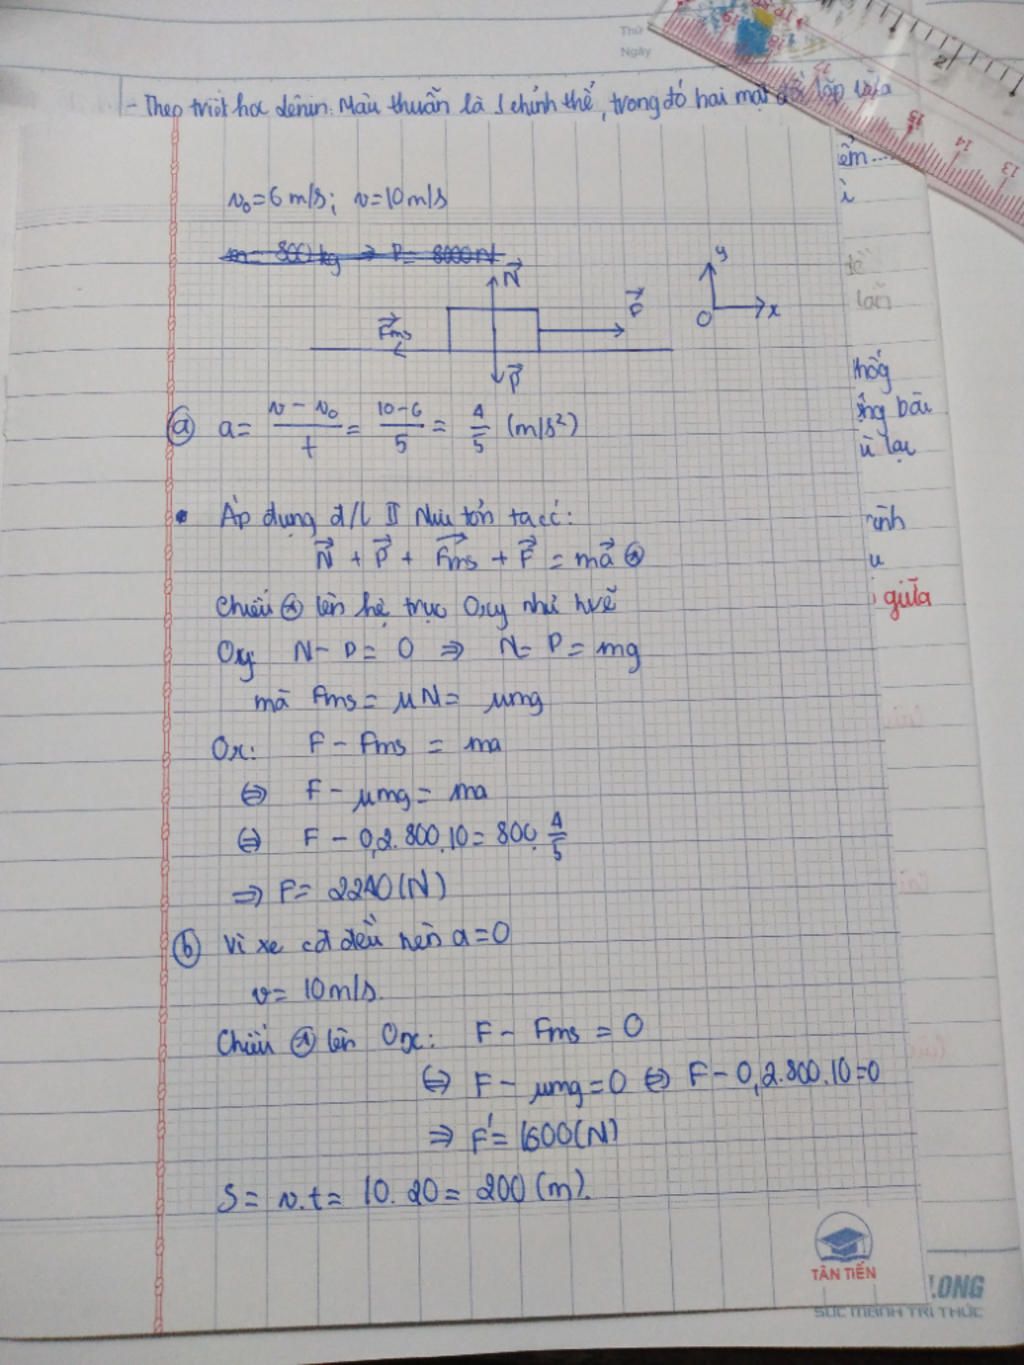 Thứ
Ngày
- Theo triết học Lênin: Mâu thuẫn là 1 chỉnh thể, trong đó hai mặt đối lập vừa
v₀=6 m/s; v=10m/s
m= 800 kg → P= 8000N
N
F
Fms
P
y
O
x
ⓐ a= (v - v₀)/t = (10-6)/5 = 4/5 (m/s²)
• Áp dụng đ/l II Niu tơn ta có:
N + P + Fms + F = ma
Chiếu lên hệ trục Oxy như hvẽ
Oy: N - P = 0 ⇒ N = P = mg
mà Fms = μN = μmg
Ox: F - Fms = ma
⇔ F - μmg = ma
⇔ F - 0,2.800.10 = 800.4/5
⇒ F = 2240(N)
ⓑ Vì xe cđ đều nên a=0
v= 10m/s.
Chiếu lên Ox: F - Fms = 0
⇔ F - μmg=0 ⇔ F - 0,2.800.10=0
⇒ F'= 1600(N)
S = v.t = 10.20 = 200 (m).
giữa
TÂN TIẾN
LONG
SỨC MẠNH TRI THỨC